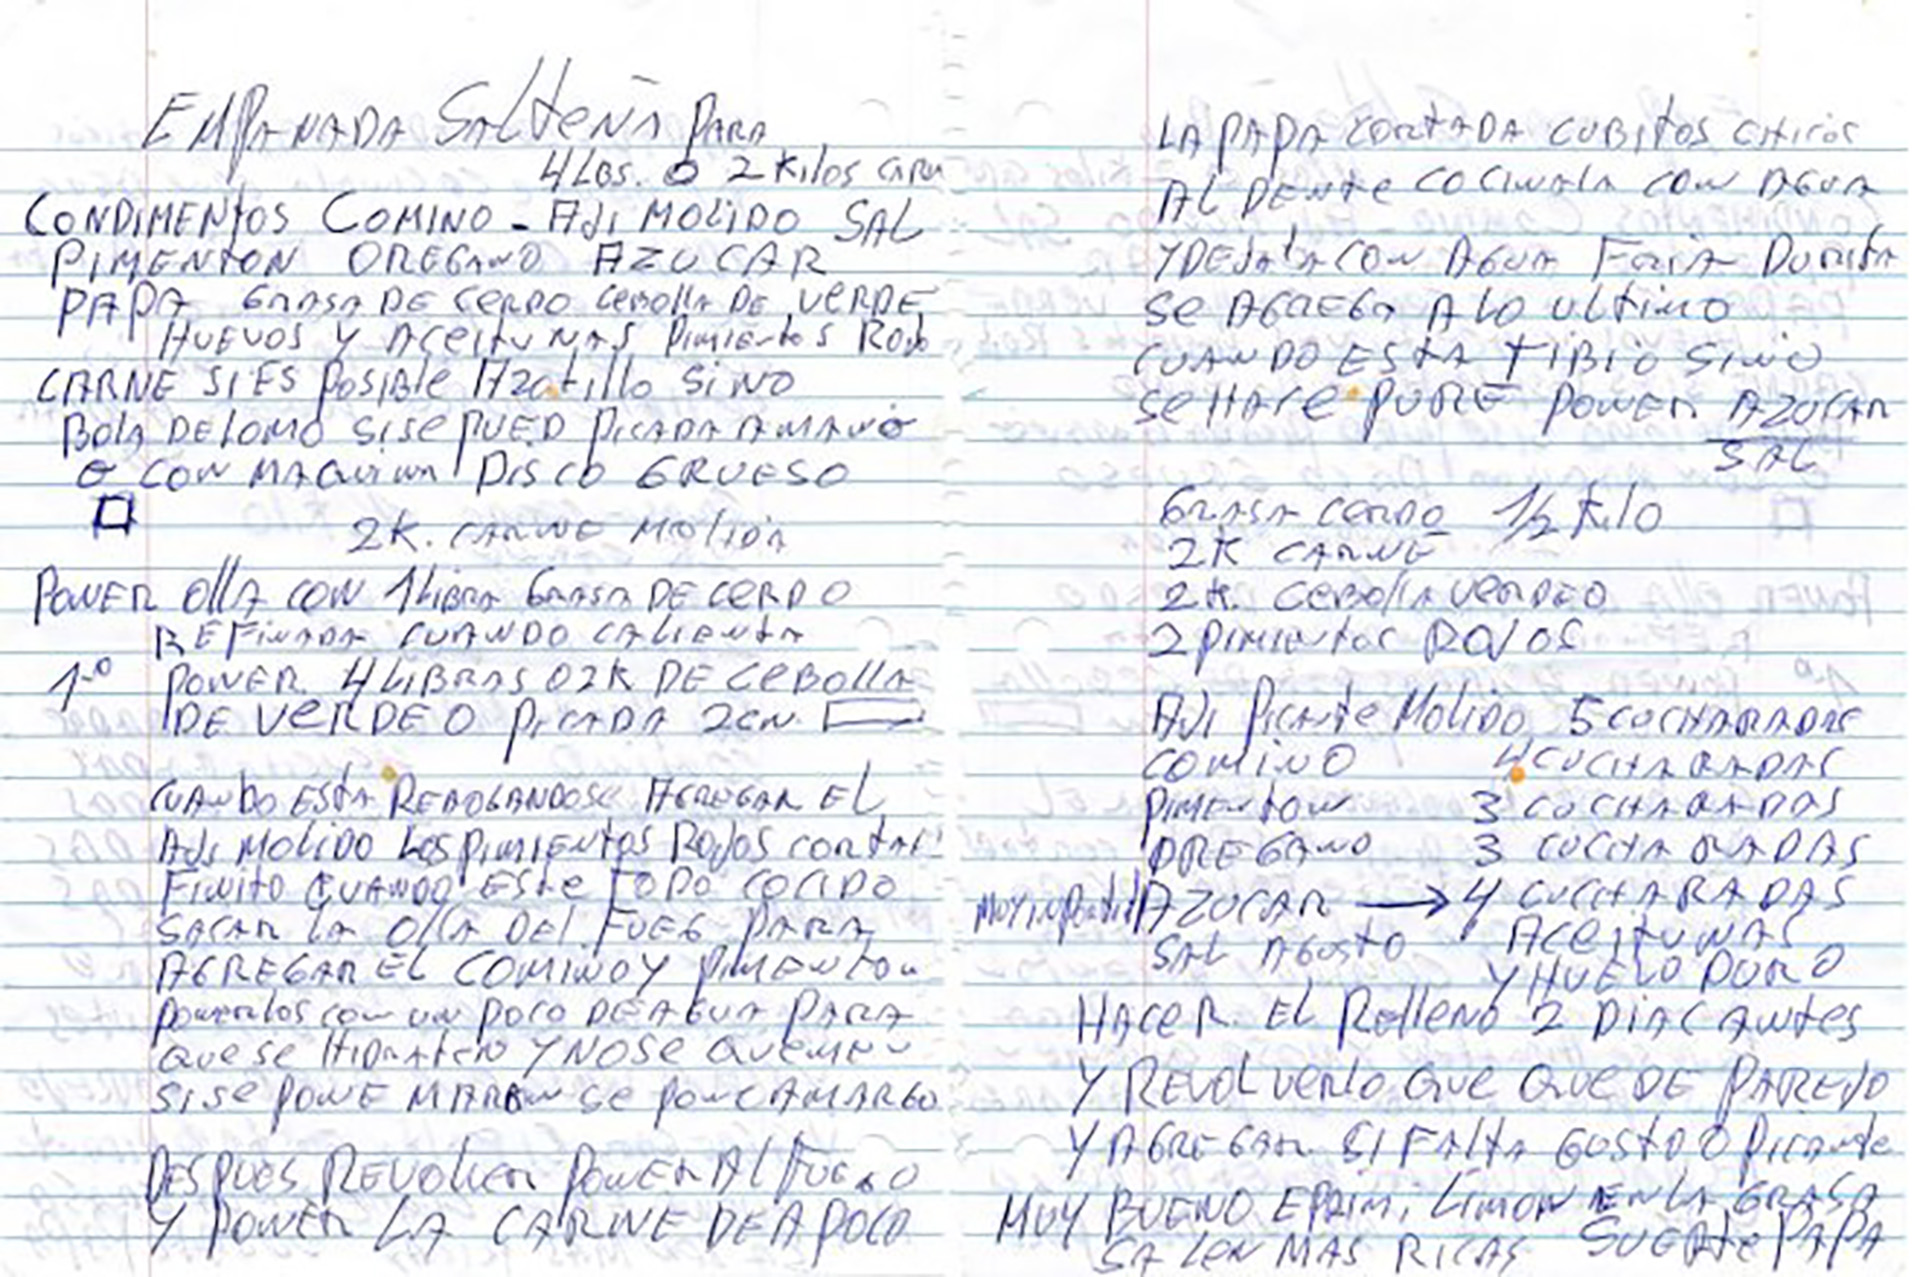 EMPANADA SALteñA PARA
4 LBS. O 2 KILOS CARN
CONDIMENTOS COMINO - AJI MOLIDO SAL
PIMENTON OREGANO AZUCAR
PAPA GRASA DE CERDO CEBOLLA DE VERDE
HUEVOS Y ACEITUNAS PIMIENTOS ROJO
CARNE SI ES POSIBLE AZOTILLO SINO
BOLA DE LOMO SI SE PUED PICADA A MANO
O CON MAQUINA DISCO GRUESO
2K. CARNE MOLIDA
PONER OLLA CON 1 LIBRA GRASA DE CERDO
REFINADA CUANDO CALIENTA
1º PONER 4 LIBRAS O 2K DE CEBOLLA
DE VERDEO PICADA 2CM.
CUANDO ESTA REHOGANDOSE AGREGAR EL
AJI MOLIDO LOS PIMIENTOS ROJOS
FINITO CUANDO ESTE TODO COCIDO
SACAR LA OLLA DEL FUEG PARA
AGREGAR EL COMINO Y PIMENTON
PONERLOS CON UN POCO DE AGUA PARA
QUE SE HIDRATEN Y NO SE QUEMEN
SI SE PONE SE PONE AMARGO
DESPUES REVOLVER PONER AL FUEGO
Y PONER LA CARNE DE A POCO
LA PAPA CORTADA CUBITOS CHICOS
AL DENTE COCINALA CON AGUA
Y DEJALA CON AGUA FRIA DURITA
SE AGREGA A LO ULTIMO
CUANDO ESTA TIBIO SINO
SE HACE PURE PONER AZUCAR
SAL
GRASA CERDO 1/2 KILO
2K CARNE
2K. CEBOLLA VERDEO
2 PIMIENTOS ROJOS
AJI PICANTE MOLIDO 5 CUCHARADAS
COMINO 4 CUCHARADAS
PIMENTON 3 CUCHARADAS
OREGANO 3 CUCHARADAS
MUY AZUCAR → 4 CUCHARADAS
SAL A GUSTO ACEITUNAS
Y HUEVO DURO
HACER EL RELLENO 2 DIAS ANTES
Y REVOLVERLO QUE QUEDE PAREJO
Y AGREGAR SI FALTA GUSTO O PICANTE
MUY BUENO LIMON EN LA GRASA
SALEN MAS RICAS SUERTE PAPA